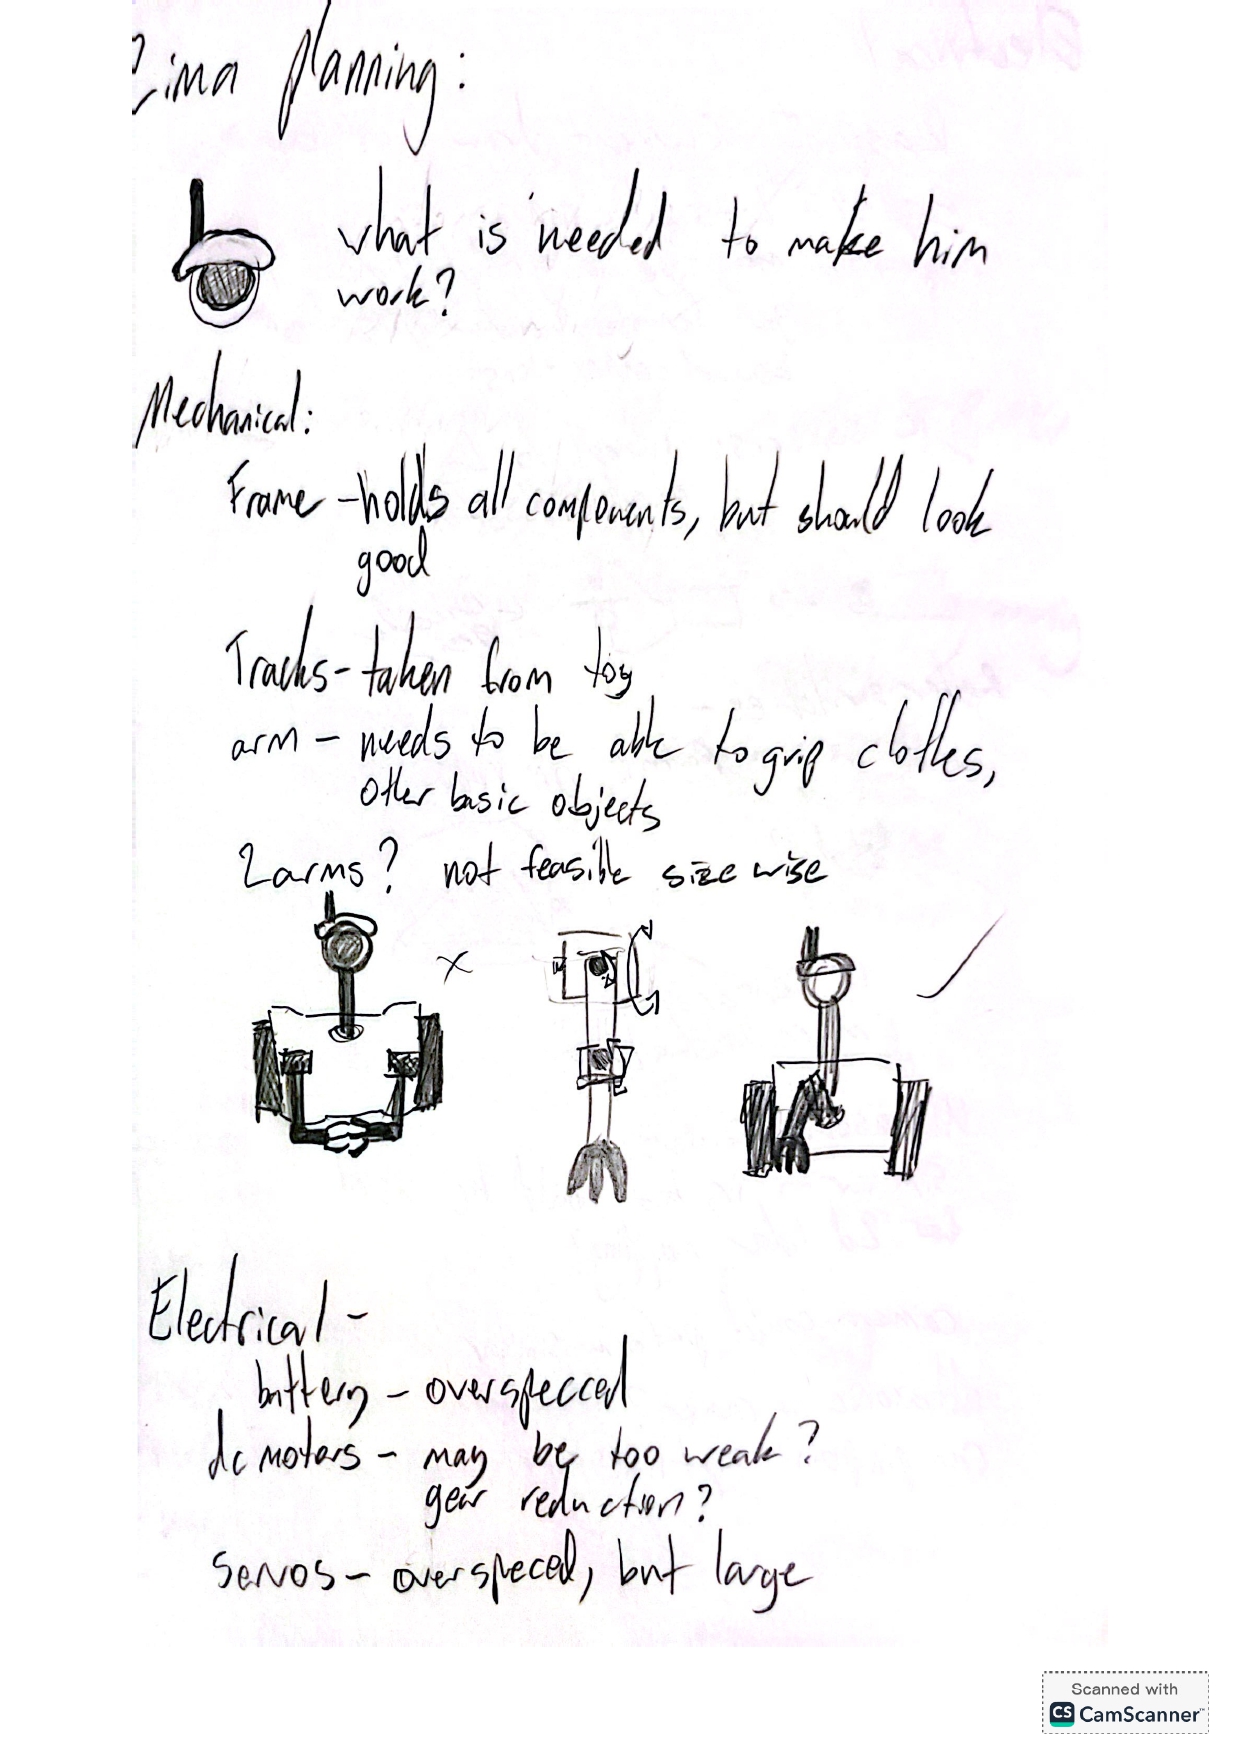 Zima planning:
what is needed to make him
work?
Mechanical:
Frame - holds all components, but should look
good
Tracks - taken from toy
arm - needs to be able to grip clothes,
other basic objects
2 arms? not feasible size wise
Electrical -
battery - overspecced
dc motors - may be too weak?
gear reduction?
servos - overspeced, but large
Scanned with
CS CamScanner